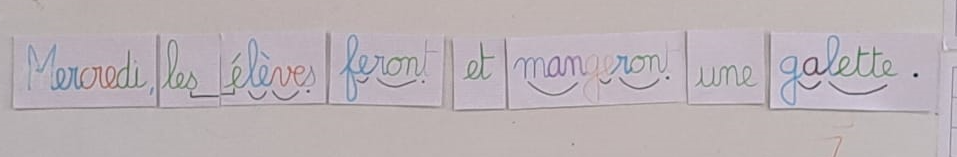 Mercredi, les élèves feront et mangeront une galette.